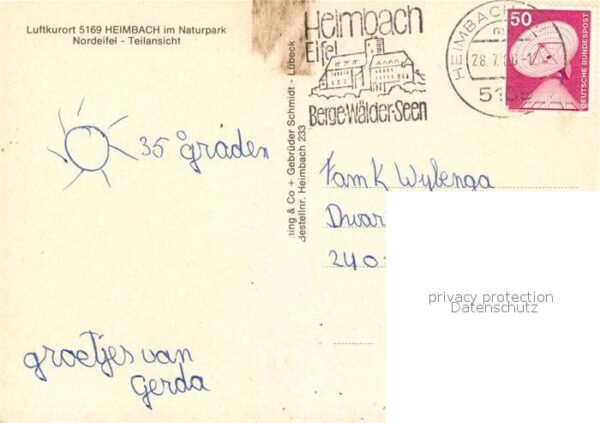 Luftkurort 5169 HEIMBACH im Naturpark
Nordeifel - Teilansicht
Heimbach
Eifel
Berge·Wälder·Seen
HEIMBACH
28.7.
50
DEUTSCHE BUNDESPOST
ing & Co + Gebrüder Schmidt - Lübeck
Bestellnr. Heimbach 233
35 graden
fam K Wybenga
Dwar
240
privacy protection
Datenschutz
groetjes van
Gerda